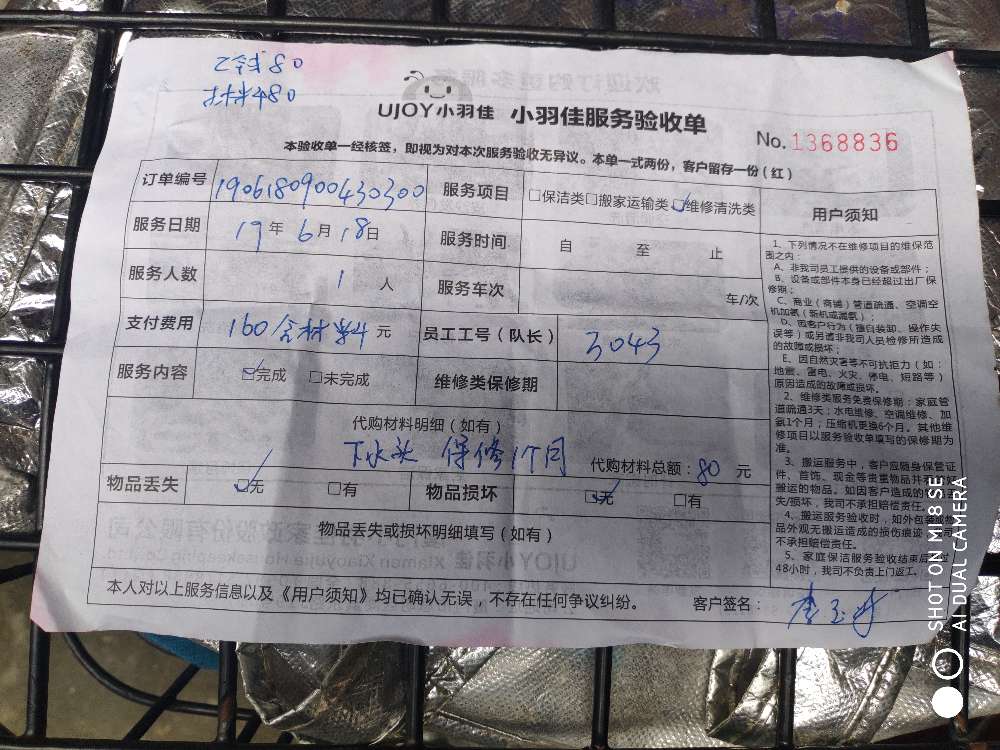 工钱80
材料80
UJOY小羽佳 小羽佳服务验收单
No.1368836
本验收单一经核签，即视为对本次服务验收无异议。本单一式两份，客户留存一份（红）
订单编号 190618090043030​0 服务项目 □保洁类□搬家运输类☑维修清洗类
服务日期 19年6月18日 服务时间 自 至 止
服务人数 1人 服务车次 车/次
支付费用 160含材料元 员工工号（队长） 3043
服务内容 ☑完成 □未完成 维修类保修期
代购材料明细（如有）
下水头 保修1个月 代购材料总额：80元
物品丢失 ☑无 □有 物品损坏 ☑无 □有
物品丢失或损坏明细填写（如有）
本人对以上服务信息以及《用户须知》均已确认无误，不存在任何争议纠纷。 客户签名：
用户须知
1、下列情况不在维修项目的维保范
围之内：
A、非我司员工提供的设备或部件；
B、设备或部件本身已经超过出厂保
修期；
C、商业（商铺）管道疏通、空调空
机加氨（新机或漏氨）；
D、因客户行为（擅自装卸、操作失
误等）或另请非我司人员检修所造成
的故障或损坏；
E、因自然灾害等不可抗拒力（如：
地震、雷电、火灾、停电、短路等）
原因造成的故障或损坏。
2、维修类服务免费保修期：家庭管
道疏通3天；水电维修、空调维修、加
氨1个月；压缩机更换6个月。其他维
修项目以服务验收单填写的保修期为
准。
3、搬运服务中，客户应随身保管证
件、首饰、现金等贵重物品并
搬运的物品。如因客户造成的
失/损坏，我司不承担赔偿责任。
4、搬运服务验收时，如外包装或
品外观无搬运造成的损伤痕迹
不承担赔偿责任。
5、家庭保洁服务验收结束后
48小时，我司不负责上门返工。
SHOT ON MI 8 SE
AI DUAL CAMERA